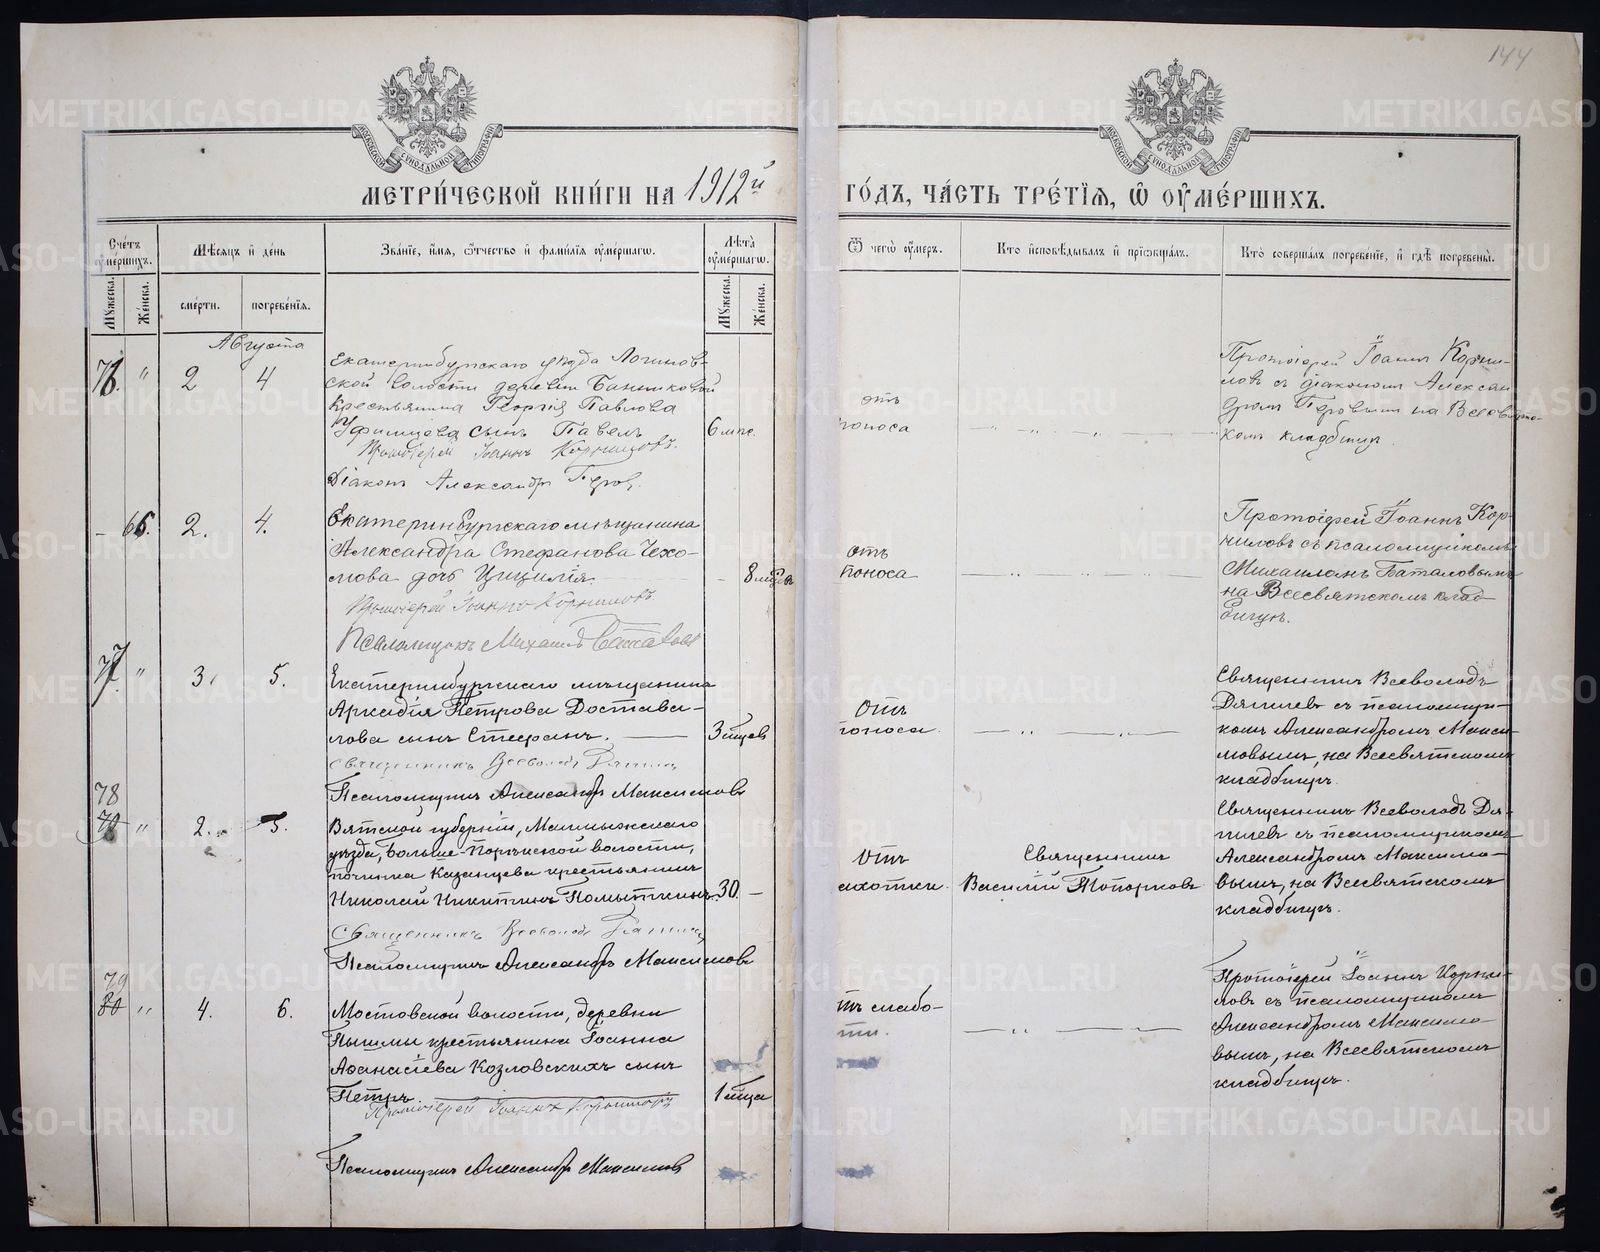 144
МЕТРИ́ЧЕСКОЙ КНИ́ГИ НА 1912й
ГО́ДЪ, ЧА́СТЬ ТРЕ́ТІЯ, Ѽ ОУМЕ́РШИХЪ.
Счетъ оумершихъ.
Мѣсяцъ и день
Званіе, имя, отчество и фамилія оумершагѡ.
Лѣта оумершагѡ.
Мужеска.
Женска.
смерти.
погребенія.
Мужеска.
Женска.
Ѿ чегѡ оумеръ.
Кто исповѣдывалъ и пріобщалъ.
Кто совершалъ погребеніе, и гдѣ погребены.
Августа
76. " 2 4
Екатеринбургскаго уѣзда Логинов-
ской волости деревни Банниковой
крестьянина Георгія Павлова
сынъ Павелъ
6 мѣс.
Протоіерей Іоаннъ Корнилов
Діаконъ Александръ
отъ
поноса
Протоіерей Іоаннъ Корни-
ловъ съ діакономъ Алексан
дромъ на Всесвятс-
комъ кладбищѣ.
- 66. 2. 4.
Екатеринбургскаго мѣщанина
Александра Стефанова Чехо-
мова дочь Цицилія.
- 8 мѣсяц
Протоіерей Іоаннъ Корниловъ
Псаломщикъ Михаилъ Баталовъ
отъ
поноса
Протоіерей Іоаннъ Кор-
ниловъ съ псаломщикомъ
Михаиломъ Баталовымъ
на Всесвятскомъ клад-
бищѣ.
77. " 3. 5.
Екатеринбургскаго мѣщанина
Аркадія Петрова Достава-
лова сынъ Стефанъ.
3 мѣсяц
Священникъ Всеволодъ
Псаломщикъ Александръ Максимовъ
Отъ
поноса.
Священникъ Всеволодъ
съ псаломщи-
комъ Александромъ Макси-
мовымъ, на Всесвятскомъ
кладбищѣ.
78
" 2. 5.
Вятской губерніи, Малмыжскаго
уѣзда, Больше-Порекской волости,
починка Казанцева крестьянинъ
Николай Никитинъ Помыткинъ.
30. -
Священникъ Всеволодъ
Псаломщикъ Александръ Максимовъ
Отъ
чахотки.
Священникъ
Василій Топорковъ
Священникъ Всеволодъ
съ псаломщикомъ
Александромъ Максимо-
вымъ, на Всесвятскомъ
кладбищѣ.
79
80 " 4. 6.
Мостовской волости, деревни
Пышмы крестьянина Іоанна
Аѳанасіева Козловскихъ сынъ
Петръ.
1 мѣсяца
Протоіерей Іоаннъ Корниловъ
Псаломщикъ Александръ Максимовъ
отъ слабо-
сти.
Протоіерей Іоаннъ Корни-
ловъ съ псаломщикомъ
Александромъ Максимо-
вымъ, на Всесвятскомъ
кладбищѣ.
METRIKI.GASO-URAL.RU